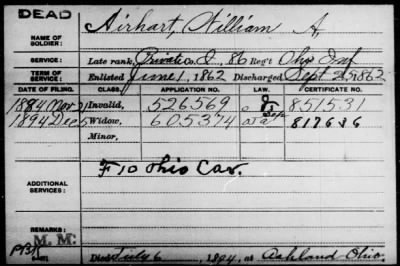 DEAD
NAME OF SOLDIER: Airhart, William A.
SERVICE: Late rank, Private Co. I, 86 Reg't Ohio Inf
TERM OF SERVICE: Enlisted June 1, 1862 Discharged Sept 25, 1862
DATE OF FILING. CLASS. APPLICATION NO. LAW. CERTIFICATE NO.
1884 Nov 21 Invalid, 526569 851531
1894 Dec 5 Widow, 605374 817636
Minor,
ADDITIONAL SERVICES: F 10 Ohio Cav.
REMARKS:
M. M.
Died July 6, 1894, at Ashland Ohio.